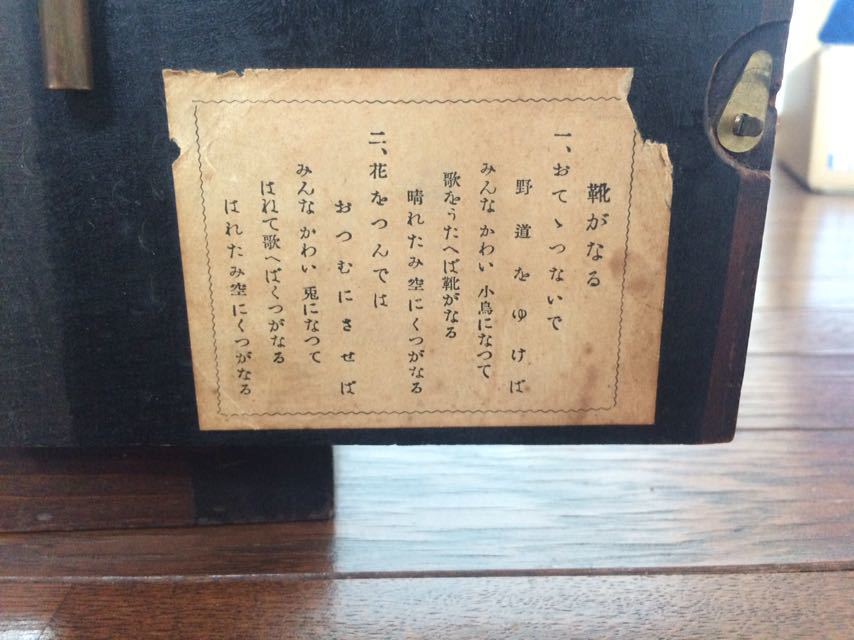 靴がなる
一、おてゝつないで
野道をゆけば
みんなかわい小鳥になつて
歌をうたへば靴がなる
晴れたみ空にくつがなる
二、花をつんでは
おつむにさせば
みんなかわい兎になつて
はねて歌へばくつがなる
はれたみ空にくつがなる